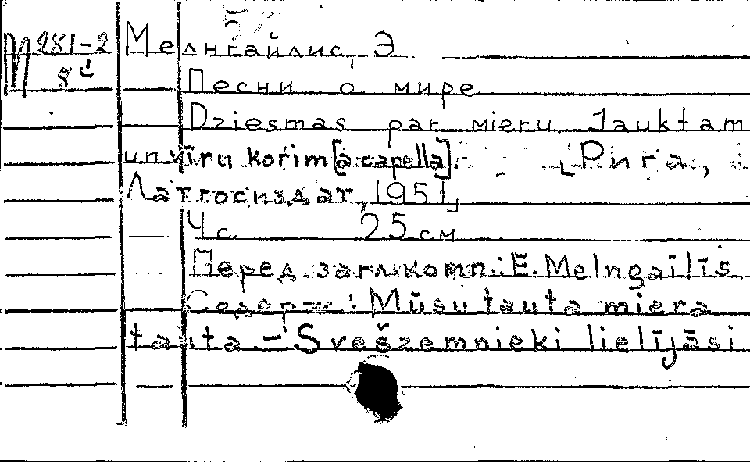 М 251-2 Мелнгайлис, Э
8 Песни о мире
Dziesmas par mieru Jauktam
un vīru korim [a capella]. [Рига,
Латгосиздат, 1951]
4 с 25 см
Перед загл. комп.: E. Melngailis
Содерж: Mūsu tauta miera
tauta - Svešzemnieki lielījāsi